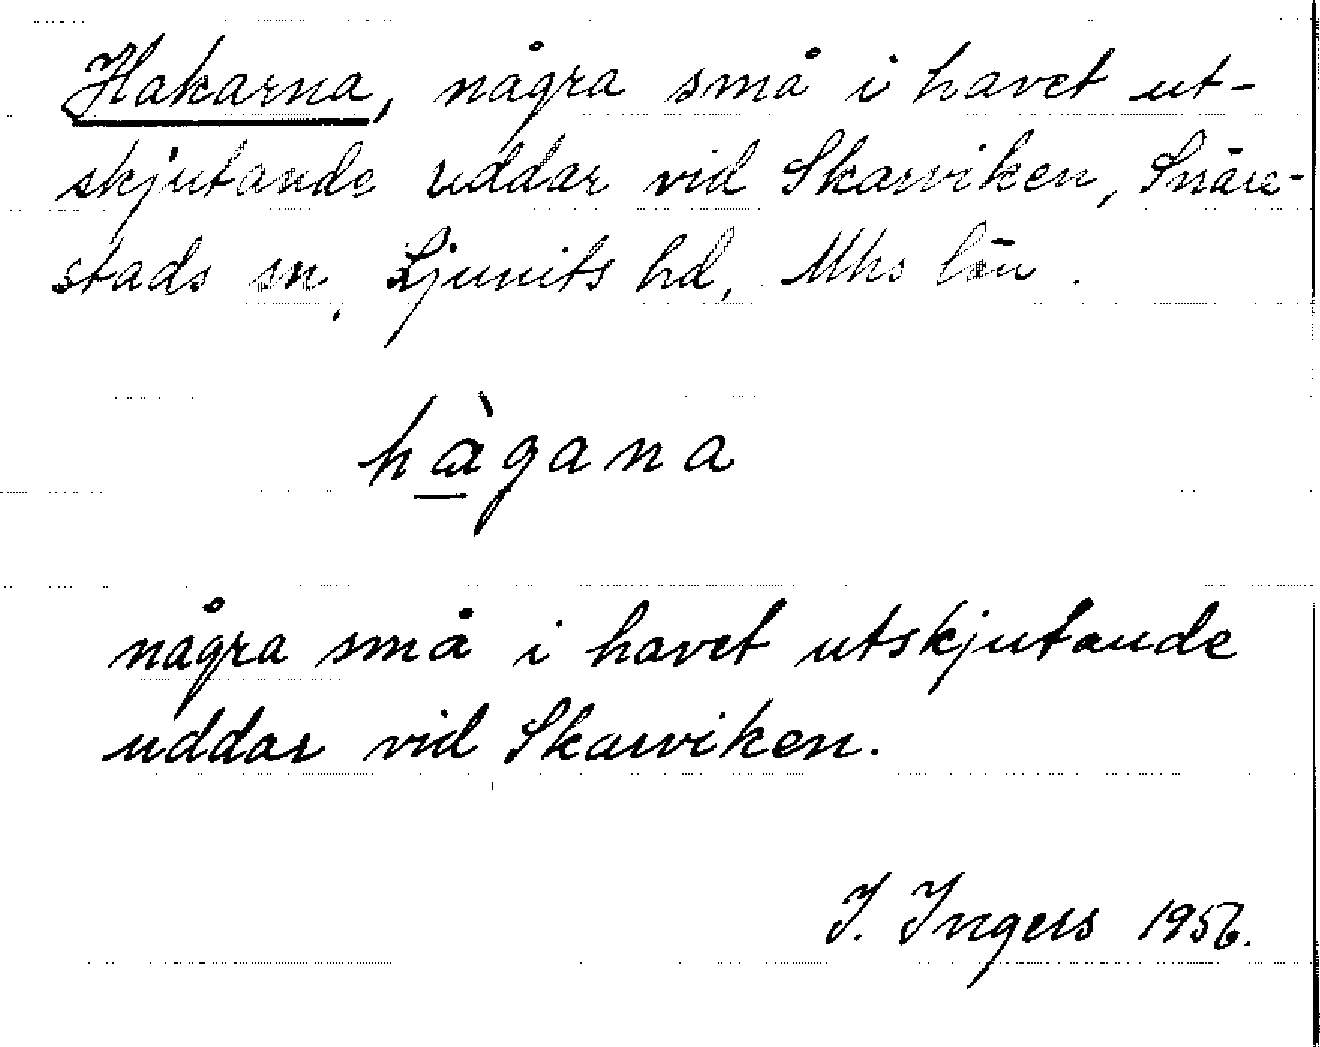 Hakarna, några små i havet ut-
skjutande uddar vid Skarviken, Snäre-
stads sn, Ljunits hd, Mhs län.
hàgana
några små i havet utskjutande
uddar vid Skarviken.
I. Ingers 1956.